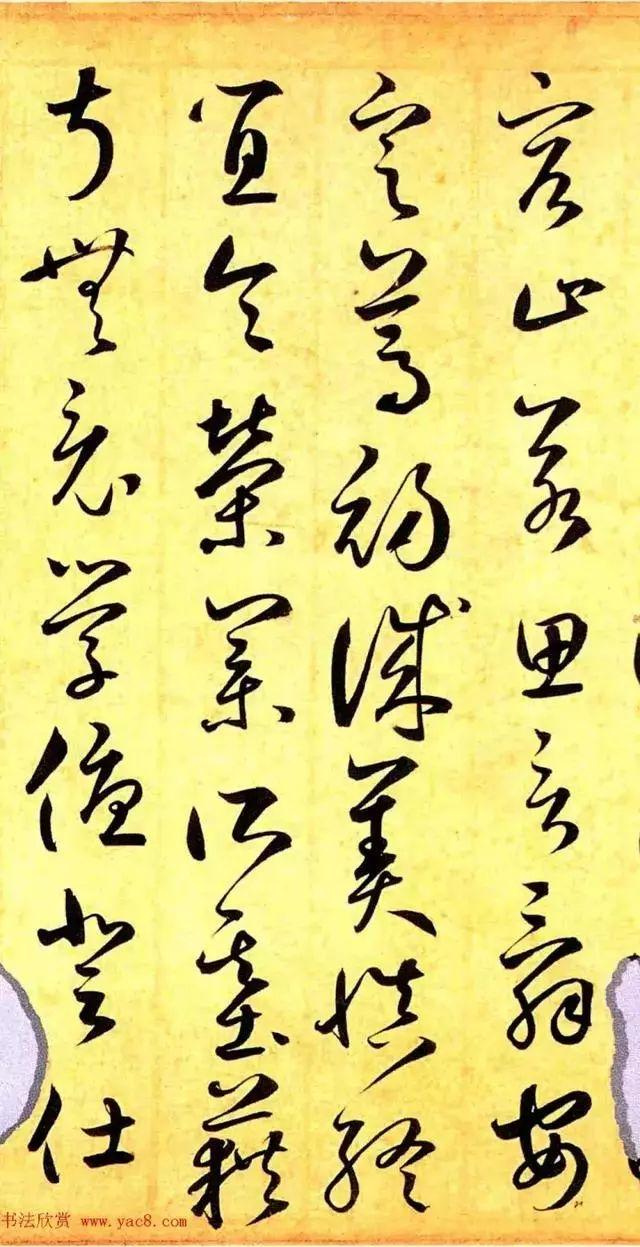 容止若思言辭安
定篤初誠美慎終
宜令榮業所基藉
甚無竟學優登仕
书法欣赏 www.yac8.com